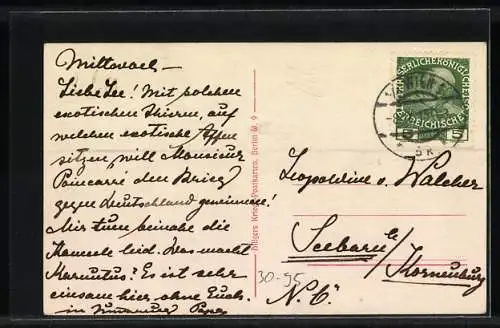 Mittwoch –
Liebe Lee! Mit solchen
exotischen Thieren, auf
welchen exotische Affen
sitzen, will Monsieur
Poincarré den Krieg
gegen Deutschland gewinnen!
Mir tuen beinahe die
Kameele leid. Was macht
? Es ist sehr
einsam hier, ohne Euch.
in Papa
Hilgers Kriegs-Postkarten. Berlin W. 9
KAISERLICHE KÖNIGLICHE
ÖSTERREICHISCHE
5 5
WIEN
5 K
Leopoldine v. Walcher
Seebarn b/
Korneuburg
N. Ö.
30-95